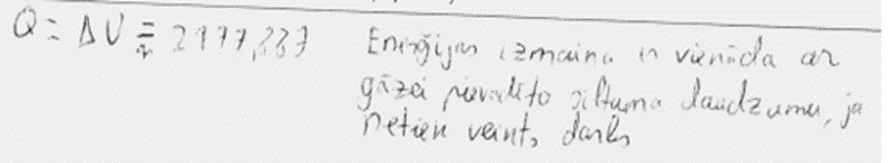 Q = ΔU = 2177,337 Enerģijas izmaiņa ir vienāda ar
gāzei pievadīto siltuma daudzumu, ja
netiek veikts darbs